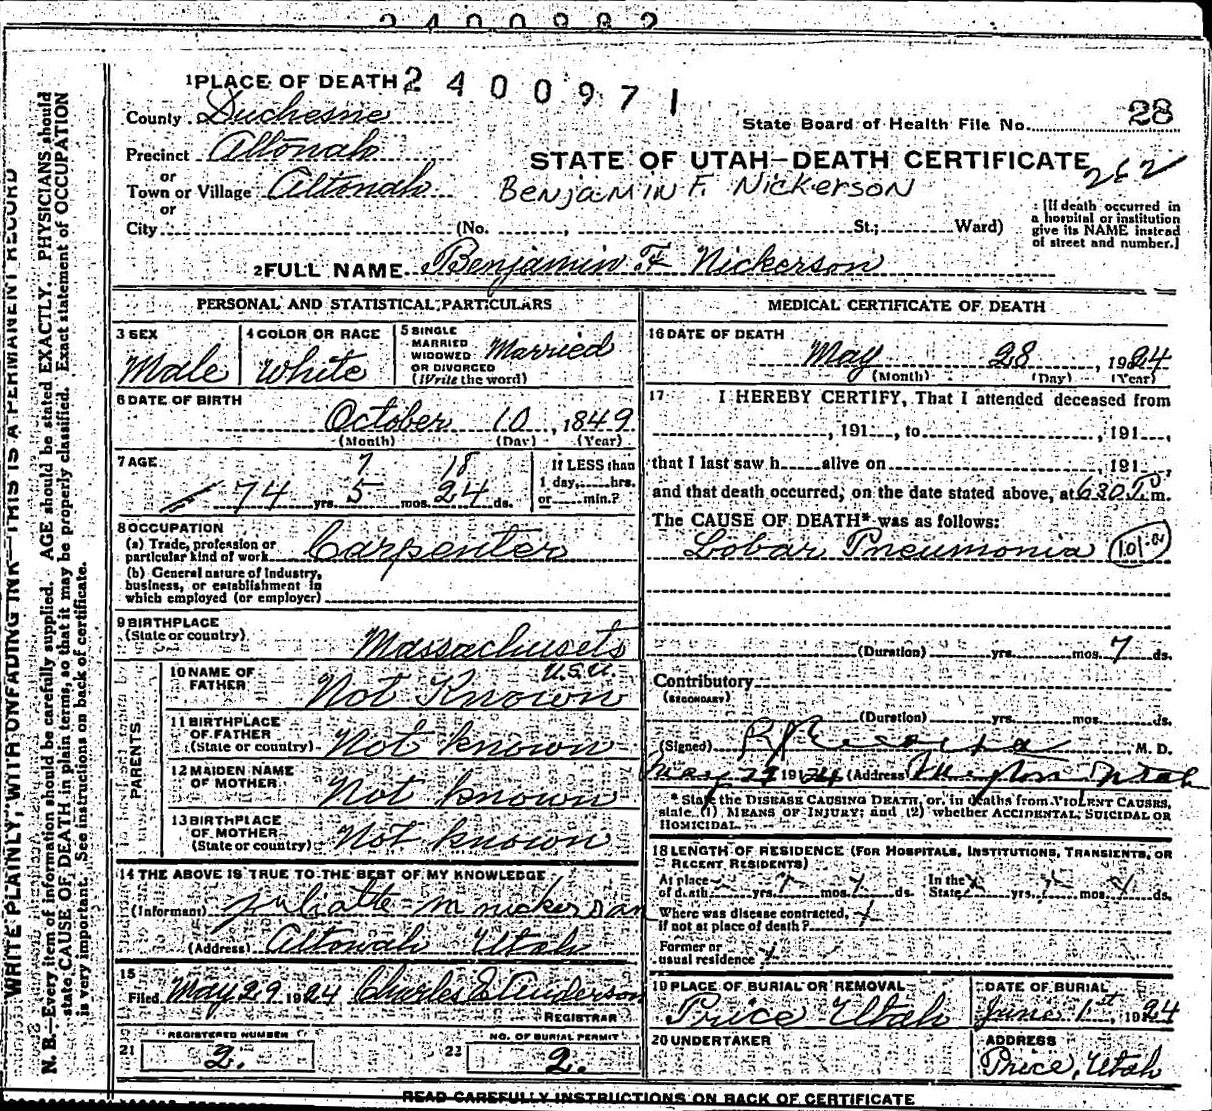 2400982
1 PLACE OF DEATH 2400971
28
County Duchesne
State Board of Health File No.
Precinct Altonah
STATE OF UTAH—DEATH CERTIFICATE
262
or
Town or Village Altonah
Benjamin F. Nickerson
or
City (No. , St.; Ward)
[If death occurred in a hospital or institution give its NAME instead of street and number.]
2 FULL NAME Benjamin F Nickerson
PERSONAL AND STATISTICAL PARTICULARS
3 SEX
Male
4 COLOR OR RACE
White
5 SINGLE
MARRIED
WIDOWED
OR DIVORCED
(Write the word)
Married
6 DATE OF BIRTH
October 10, 1849
(Month) (Day) (Year)
7 AGE
7 18
74 yrs. 5 mos. 24 ds.
If LESS than
1 day, hrs.
or min.?
8 OCCUPATION
(a) Trade, profession or
particular kind of work Carpenter
(b) General nature of industry,
business, or establishment in
which employed (or employer)
9 BIRTHPLACE
(State or country)
Massachusets
U.S.A.
PARENTS
10 NAME OF
FATHER
Not Known
11 BIRTHPLACE
OF FATHER
(State or country) Not known
12 MAIDEN NAME
OF MOTHER
Not known
13 BIRTHPLACE
OF MOTHER
(State or country) Not known
14 THE ABOVE IS TRUE TO THE BEST OF MY KNOWLEDGE
(Informant) m nickerson
(Address) Altonah Utah
15
Filed May 29 1924 Charles E Anderson
REGISTRAR
21 REGISTERED NUMBER
2.
22 NO. OF BURIAL PERMIT
2.
MEDICAL CERTIFICATE OF DEATH
16 DATE OF DEATH
May 28, 1924
(Month) (Day) (Year)
17 I HEREBY CERTIFY, That I attended deceased from
, 191 , to , 191 ,
that I last saw h alive on , 191 ,
and that death occurred, on the date stated above, at 6 30 P. m.
The CAUSE OF DEATH* was as follows:
Lobar Pneumonia
(Duration) yrs. mos. 7 ds.
Contributory
(SECONDARY)
(Duration) yrs. mos. ds.
(Signed) M. D.
May 29 1924 (Address) Utah
* State the DISEASE CAUSING DEATH, or, in deaths from VIOLENT CAUSES,
state (1) MEANS OF INJURY; and (2) whether ACCIDENTAL, SUICIDAL OR
HOMICIDAL.
18 LENGTH OF RESIDENCE (FOR HOSPITALS, INSTITUTIONS, TRANSIENTS, OR
RECENT RESIDENTS)
At place
of death yrs. mos. ds.
In the
State yrs. mos. ds.
Where was disease contracted,
if not at place of death?
Former or
usual residence
19 PLACE OF BURIAL OR REMOVAL
Price Utah
DATE OF BURIAL
June 1st, 1924
20 UNDERTAKER
ADDRESS
Price, Utah
READ CAREFULLY INSTRUCTIONS ON BACK OF CERTIFICATE
WRITE PLAINLY, WITH UNFADING INK—THIS IS A PERMANENT RECORD
N. B.—Every item of information should be carefully supplied. AGE should be stated EXACTLY. PHYSICIANS should
state CAUSE OF DEATH in plain terms, so that it may be properly classified. Exact statement of OCCUPATION
is very important. See instructions on back of certificate.